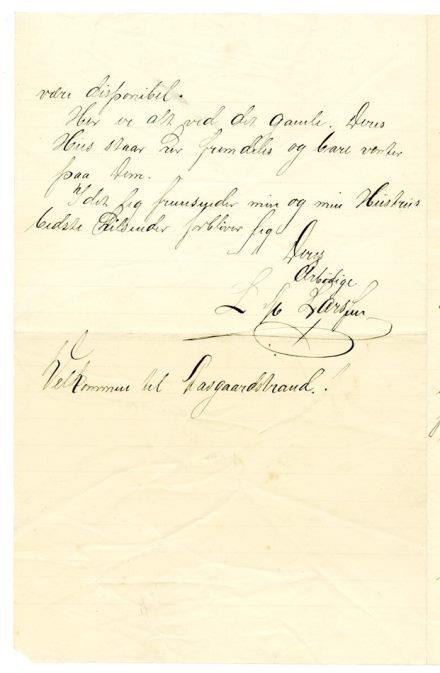 være disponibel.
Her er alt ved det gamle. Deres
Hus staar her fremdeles og bare venter
paa Dem.
Idet jeg fremsender min og min Hustrus
bedste Hilsender forbliver jeg
Deres
Ærbødige
L Larssen
Velkommen til Aasgaardstrand.!